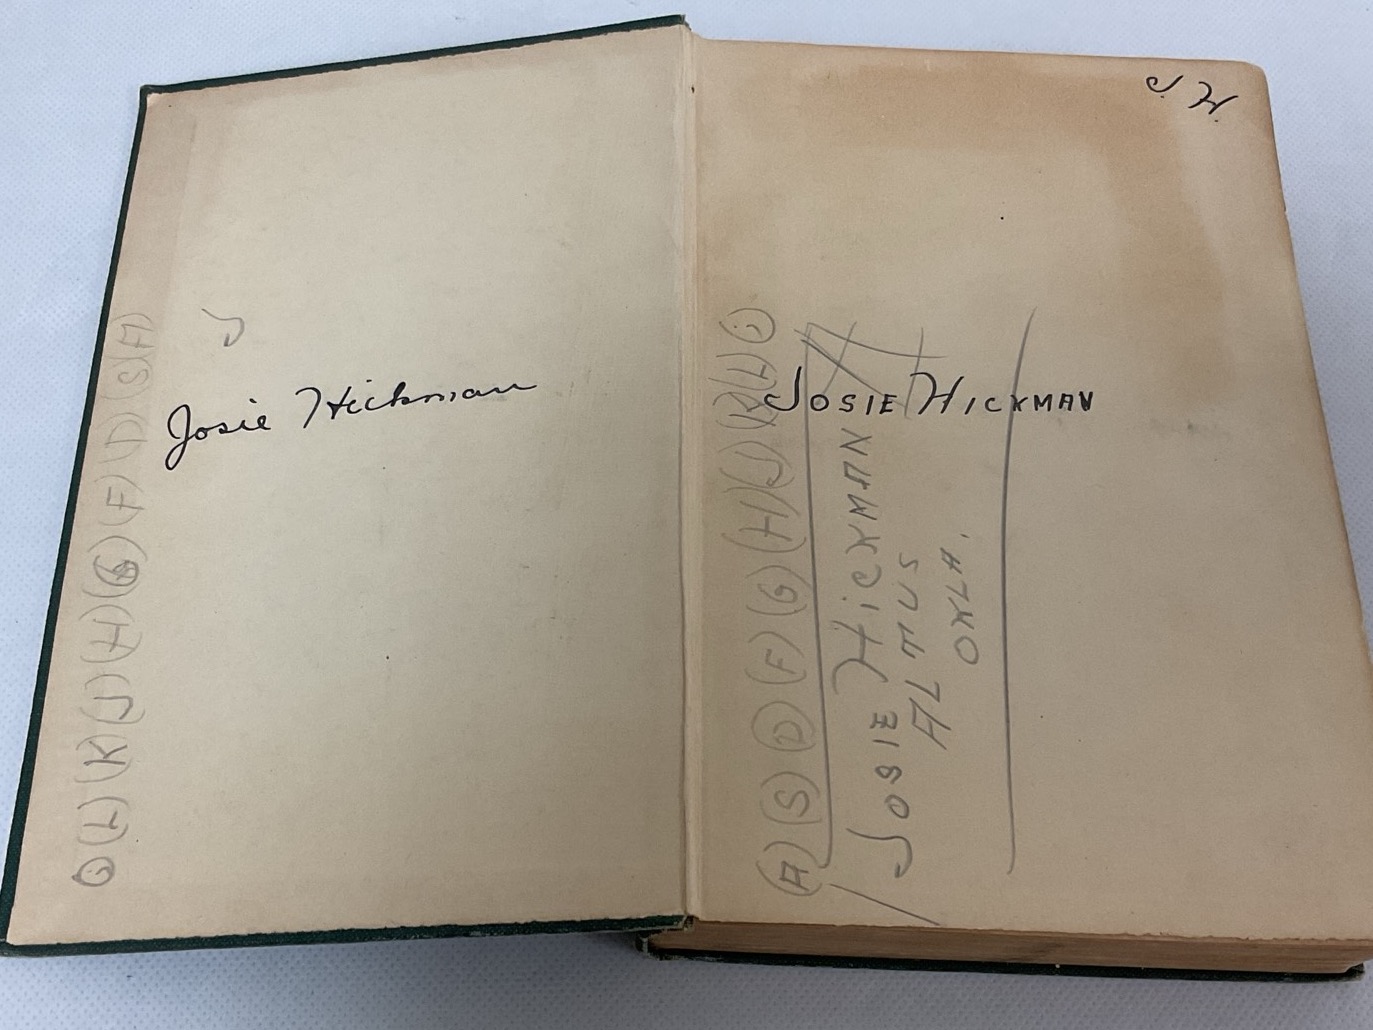 J
Josie Hickman
(;)(L)(K)(J)(H)(G)(F)(D)(S)(A)
J. H.
JOSIE HICKMAN
(A)(S)(D)(F)(G)(H)(J)(K)(L)(;)
JOSIE HICKMAN
ALTUS
OKLA.